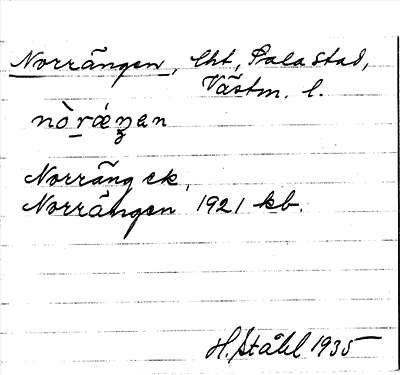 Norrängen, lht, Sala stad,
Västm. l.
nòrǽŋen
Norräng ek,
Norrängen 1921 kb.
H. Ståhl 1935